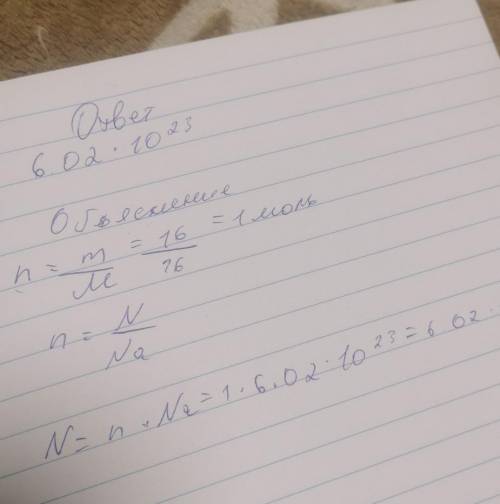 Ответ
6 02 · 10²³
Объяснение
n = m/M = 16/16 = 1 моль
n = N/Na
N = n · Na = 1 · 6,02 · 10²³ = 6 02 ·